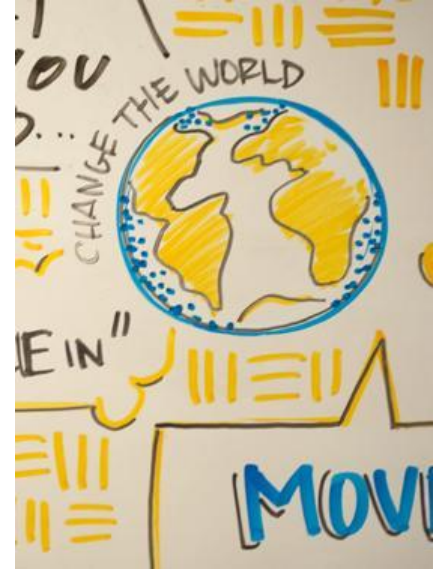 YOU
CHANGE THE WORLD
IN"
MOV